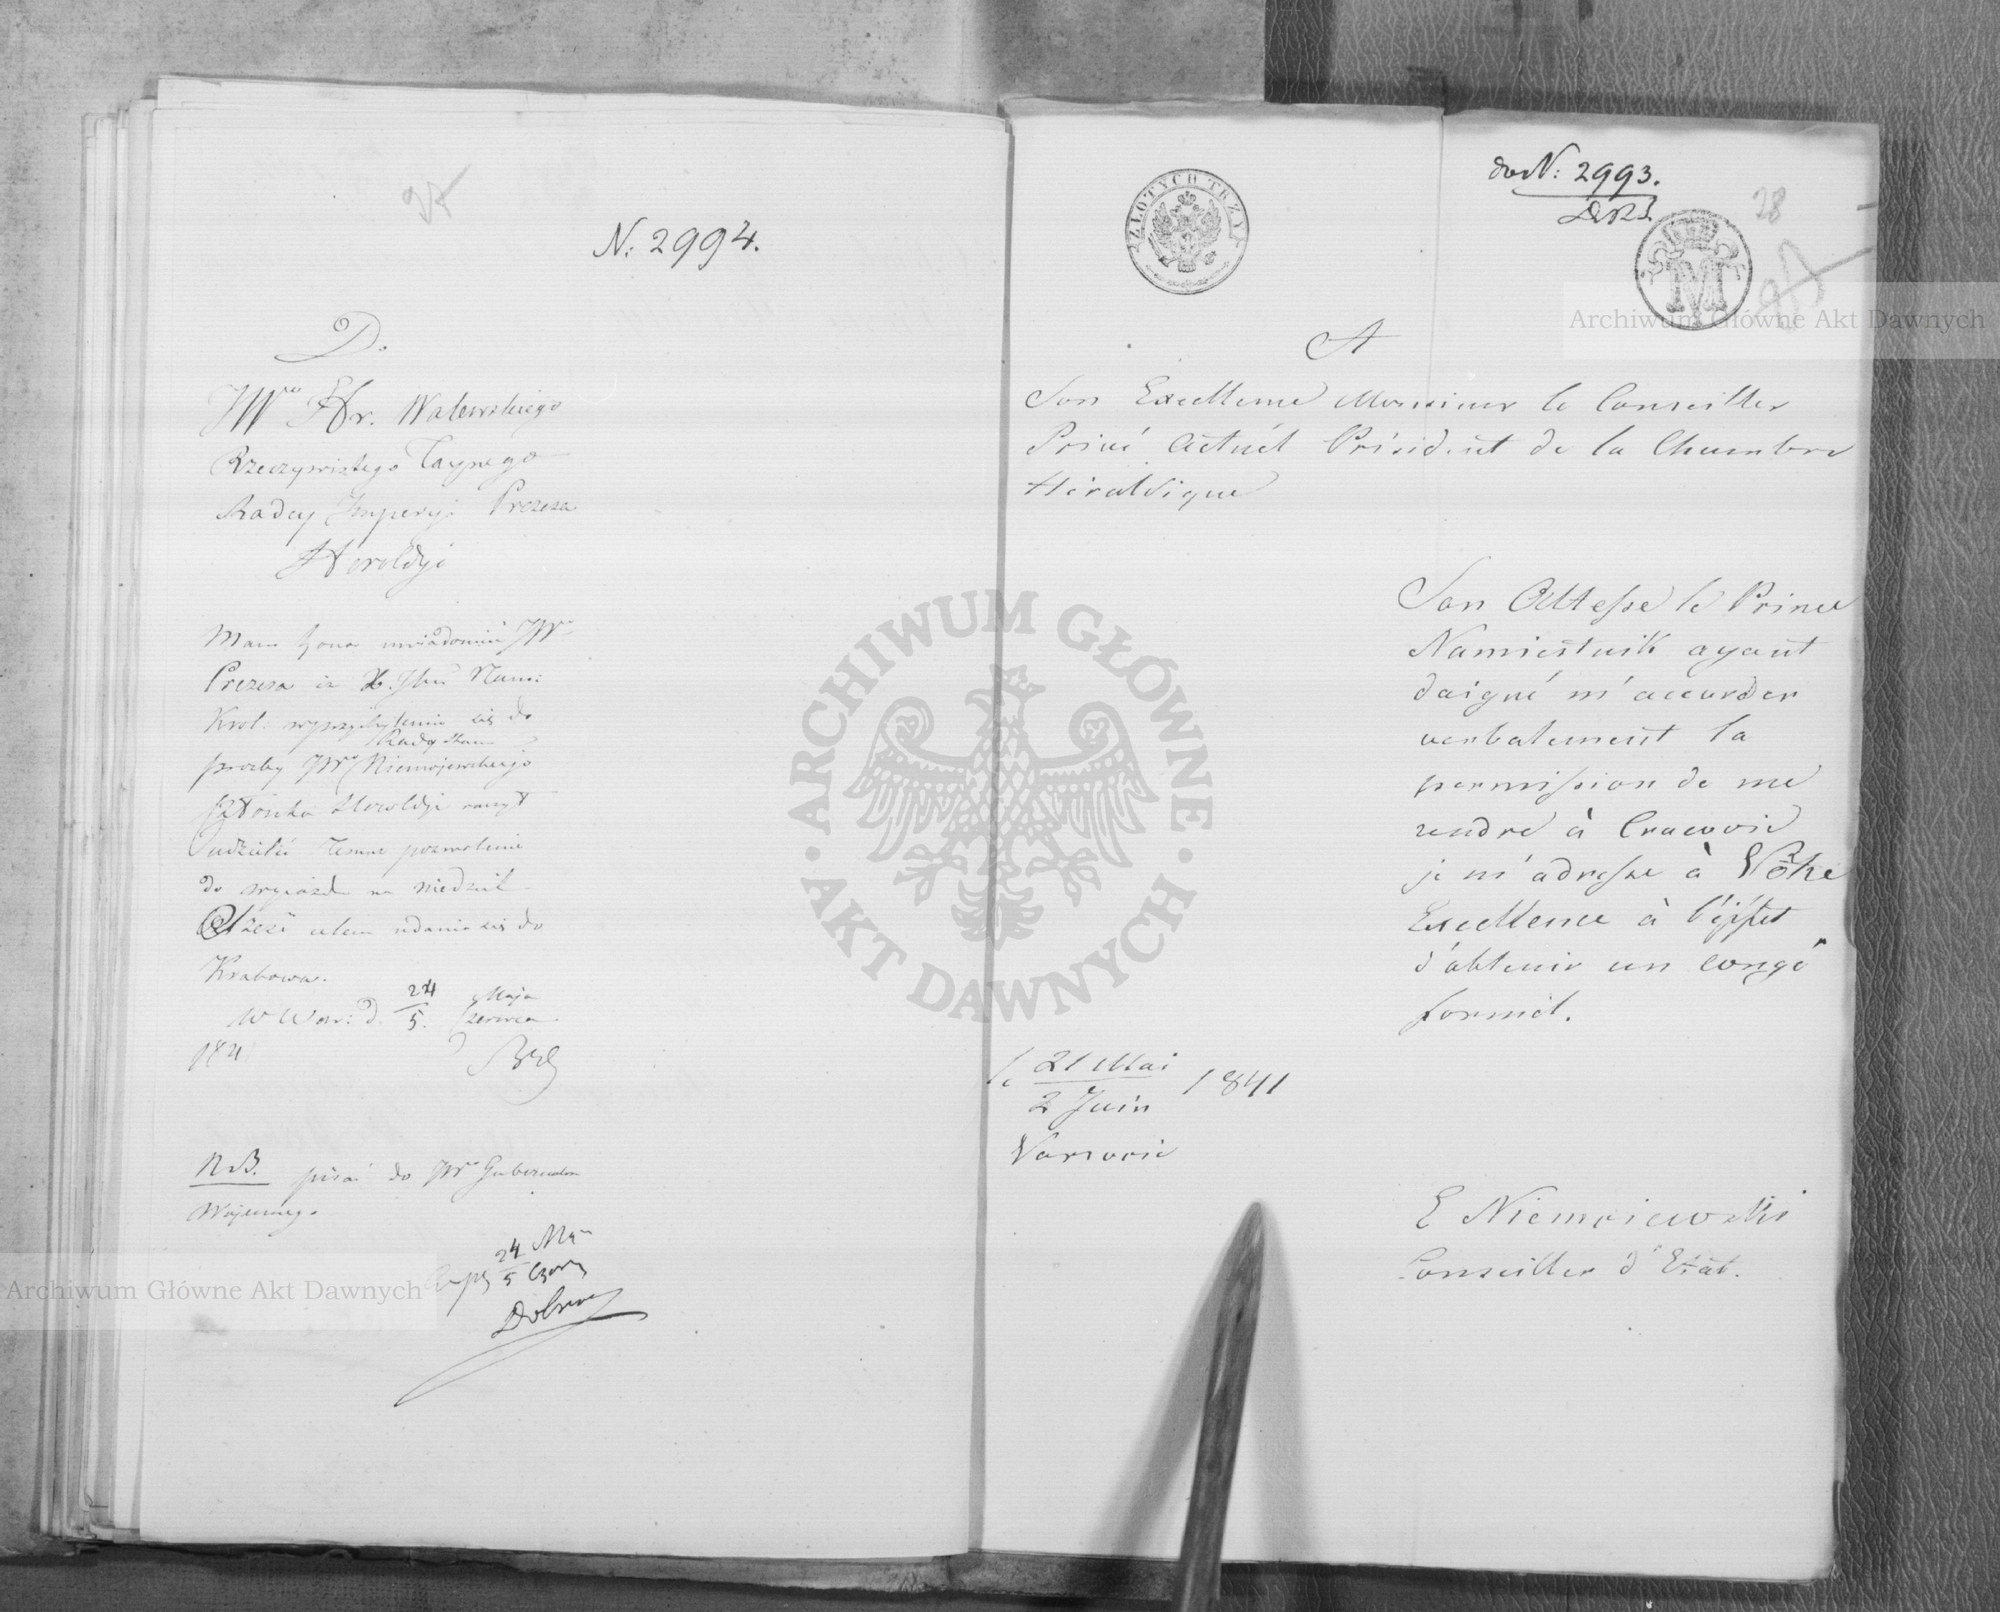 N: 2994.
D.
JWgo Hr. Walewskiego
Rzeczywistego Taynego
Radcy Imperyi Prezesa
Heroldyi
Mam honor uwiadomić JWgo
Prezesa iż X. Jmć Nam:
Król: przychylenie się do
Radcy Stanu
prozby JWgo Niemojewskiego
Członka Heroldyi raczył
udzielić Temuż pozwolenie
do wyjazdu na niedziel
sześć celem udania się do
Krakowa.
W War: d. 24/5. Maja Czerwca
1841
NB. pisać do JWgo Gubernatora
Wojennego
24 Maja
5 Czerw
do N: 2993.
28
ZŁOTYCH TRZY
M
A
Son Excellence Monsieur le Conseiller
Privé Actuel Président de la Chambre
Héraldique
Son Altesse le Prince
Namiestnik ayant
daigné m'accorder
verbalement la
permission de me
rendre à Cracovie
je m'adresse à Vôtre
Excellence à l'éffet
d'obtenir un congé
formel.
le 21 Mai 1841
2 Juin
Varsovie
E Niemoiewski
Conseiller d'Etat.
ARCHIWUM GŁÓWNE AKT DAWNYCH
Archiwum Główne Akt Dawnych
Archiwum Główne Akt Dawnych